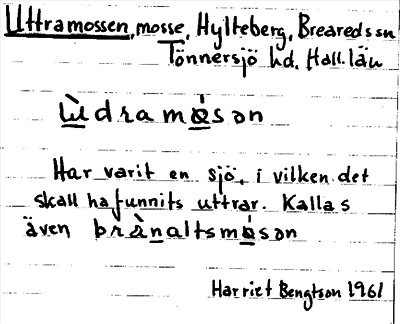 Uttramossen, mosse, Hylteberg, Breareds sn
Tönnersjö hd. Hall. län
ùdramåsən
Har varit en sjö, i vilken det
skall ha funnits uttrar. Kallas
även brànaltsmåsən
Harriet Bengtson 1961